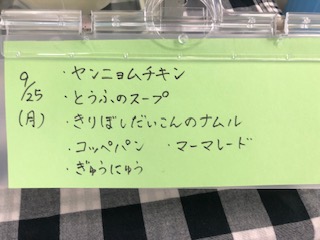 9/25 ・ヤンニョムチキン
・とうふのスープ
(月) ・きりぼしだいこんのナムル
・コッペパン ・マーマレード
・ぎゅうにゅう